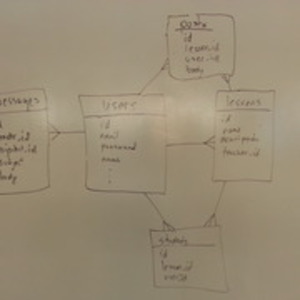 posts
id
lesson_id
user_id
body
messages
sender_id
recipient_id
body
users
id
email
password
name
lessons
id
name
description
teacher_id
students
id
lesson_id
user_id